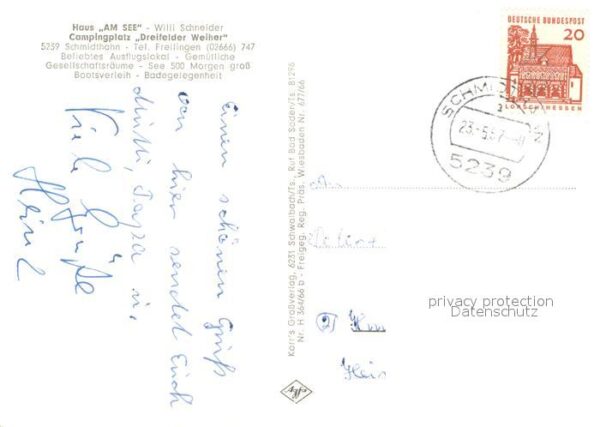 Haus „AM SEE" - Willi Schneider
Campingplatz „Dreifelder Weiher"
5239 Schmidthahn - Tel. Freilingen (02666) 747
Beliebtes Ausflugslokal - Gemütliche
Gesellschaftsräume - See 500 Morgen groß
Bootsverleih - Badegelegenheit
Einen schönen Gruß
von hier sendet Euch
Mutti, Papa u.
Viele Grüße
Karr's Großverlag, 6231 Schwalbach/Ts., Ruf Bad Soden/Ts. 81296
Nr. H 364/66 b - Freigeg. Reg. Präs. Wiesbaden Nr. 677/66
DEUTSCHE BUNDESPOST
20
LORSCH/HESSEN
23.-5.67.-8
5239
An
privacy protection
Datenschutz